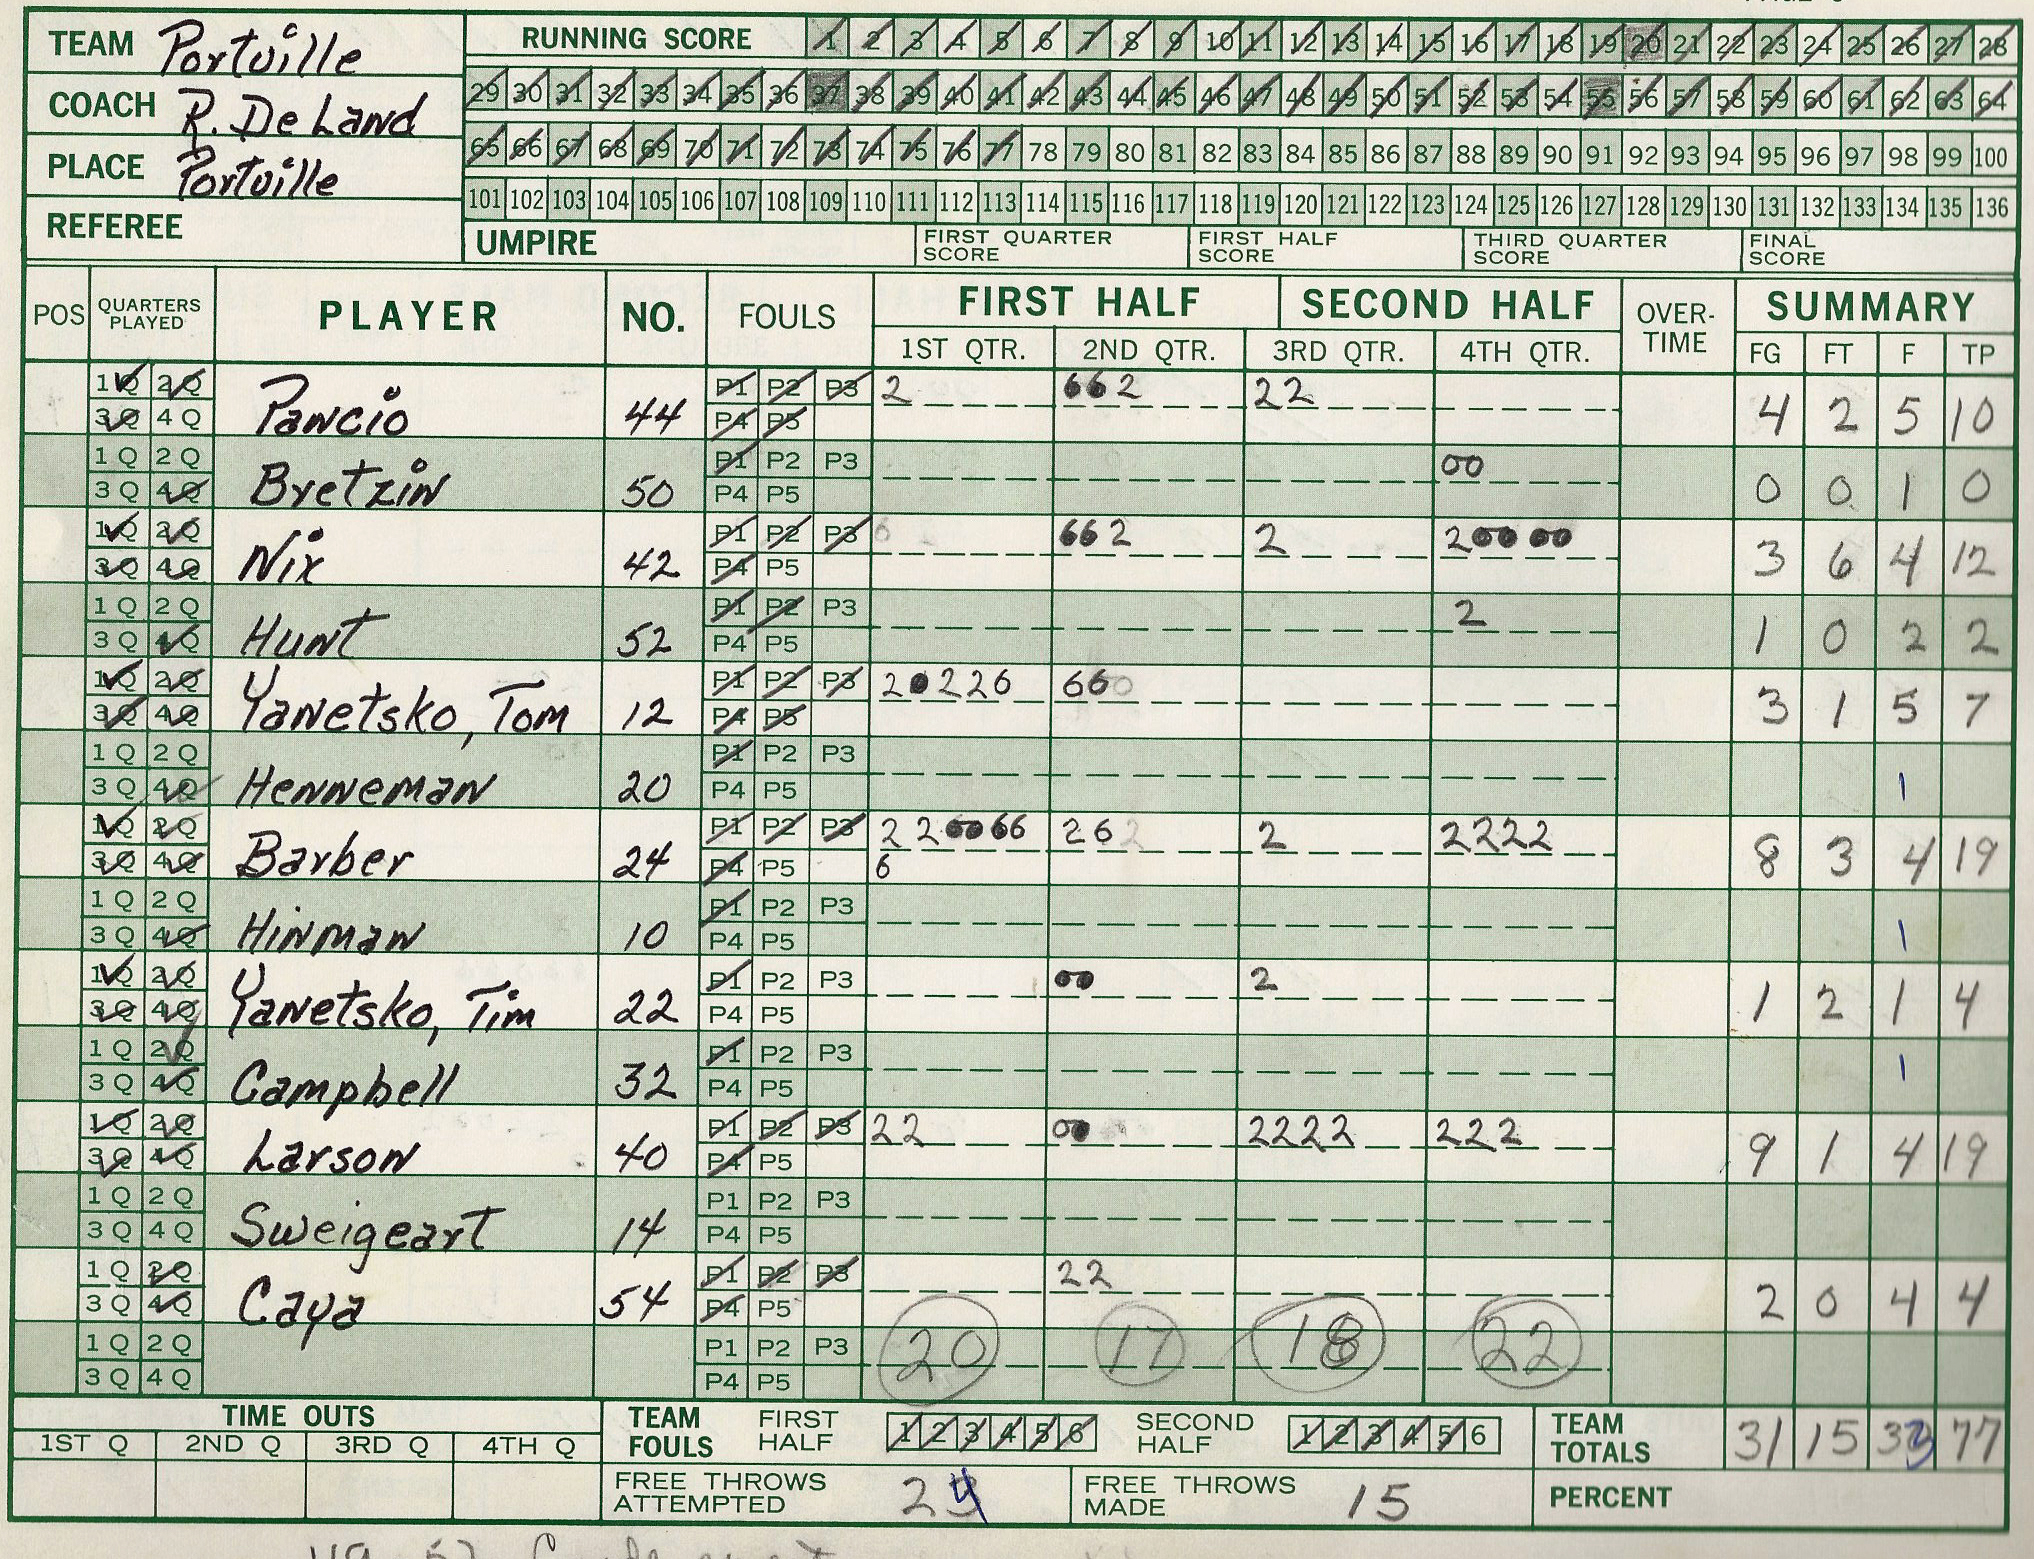 TEAM Portville
COACH R. De Land
PLACE Portville
REFEREE
RUNNING SCORE 1 2 3 4 5 6 7 8 9 10 11 12 13 14 15 16 17 18 19 20 21 22 23 24 25 26 27 28
29 30 31 32 33 34 35 36 37 38 39 40 41 42 43 44 45 46 47 48 49 50 51 52 53 54 55 56 57 58 59 60 61 62 63 64
65 66 67 68 69 70 71 72 73 74 75 76 77 78 79 80 81 82 83 84 85 86 87 88 89 90 91 92 93 94 95 96 97 98 99 100
101 102 103 104 105 106 107 108 109 110 111 112 113 114 115 116 117 118 119 120 121 122 123 124 125 126 127 128 129 130 131 132 133 134 135 136
UMPIRE FIRST QUARTER SCORE FIRST HALF SCORE THIRD QUARTER SCORE FINAL SCORE
POS QUARTERS PLAYED PLAYER NO. FOULS FIRST HALF SECOND HALF OVER-TIME SUMMARY
1ST QTR. 2ND QTR. 3RD QTR. 4TH QTR. FG FT F TP
1Q 2Q P1 P2 P3 2 662 22
3Q 4Q Pancio 44 P4 P5 4 2 5 10
1Q 2Q P1 P2 P3 00
3Q 4Q Bretzin 50 P4 P5 0 0 1 0
1Q 2Q P1 P2 P3 6 662 2 20000
3Q 4Q Nix 42 P4 P5 3 6 4 12
1Q 2Q P1 P2 P3 2
3Q 4Q Hunt 52 P4 P5 1 0 2 2
1Q 2Q P1 P2 P3 20226 660
3Q 4Q Yanetsko, Tom 12 P4 P5 3 1 5 7
1Q 2Q P1 P2 P3
3Q 4Q Henneman 20 P4 P5 1
1Q 2Q P1 P2 P3 220066 262 2 2222
3Q 4Q Barber 24 P4 P5 6 8 3 4 19
1Q 2Q P1 P2 P3
3Q 4Q Hinman 10 P4 P5 1
1Q 2Q P1 P2 P3 00 2
3Q 4Q Yanetsko, Tim 22 P4 P5 1 2 1 4
1Q 2Q P1 P2 P3
3Q 4Q Campbell 32 P4 P5 1
1Q 2Q P1 P2 P3 22 00 2222 222
3Q 4Q Larson 40 P4 P5 9 1 4 19
1Q 2Q P1 P2 P3
3Q 4Q Sweigeart 14 P4 P5
1Q 2Q P1 P2 P3 22
3Q 4Q Caya 54 P4 P5 2 0 4 4
1Q 2Q P1 P2 P3 20 17 18 22
3Q 4Q P4 P5
TIME OUTS TEAM FOULS FIRST HALF 1 2 3 4 5 6 SECOND HALF 1 2 3 4 5 6 TEAM TOTALS 31 15 33 77
1ST Q 2ND Q 3RD Q 4TH Q
FREE THROWS ATTEMPTED 24 FREE THROWS MADE 15 PERCENT